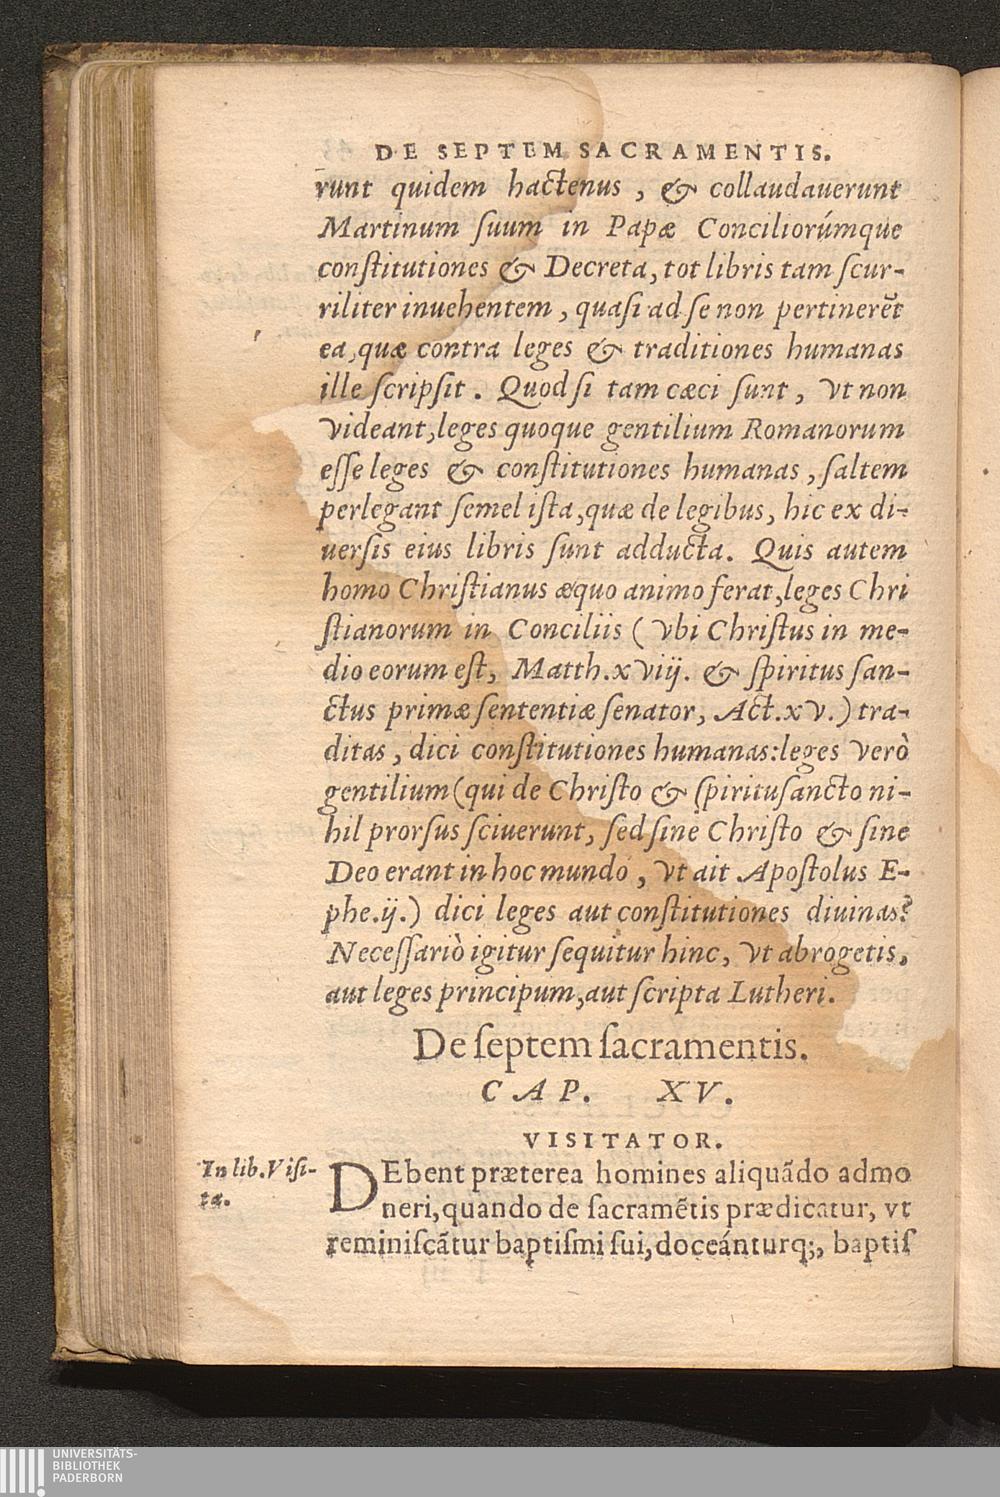 DE SEPTEM SACRAMENTIS.
runt quidem hactenus, & collaudauerunt
Martinum ſuum in Papæ Conciliorúmque
conſtitutiones & Decreta, tot libris tam ſcur-
riliter inuehentem, quaſi ad ſe non pertinerẽt
ea, quæ contra leges & traditiones humanas
ille ſcripſit. Quod ſi tam cæci ſunt, vt non
videant, leges quoque gentilium Romanorum
eſſe leges & conſtitutiones humanas, ſaltem
perlegant ſemel iſta, quæ de legibus, hic ex di-
uerſis eius libris ſunt adducta. Quis autem
homo Chriſtianus æquo animo ferat, leges Chri
ſtianorum in Conciliis (vbi Chriſtus in me-
dio eorum eſt, Matth.xviij. & ſpiritus ſan-
ctus primæ ſententiæ ſenator, Act.xv.) tra-
ditas, dici conſtitutiones humanas: leges verò
gentilium (qui de Chriſto & ſpirituſancto ni-
hil prorſus ſciuerunt, ſed ſine Chriſto & ſine
Deo erant in hoc mundo, vt ait Apoſtolus E-
phe.ij.) dici leges aut conſtitutiones diuinas?
Neceſſariò igitur ſequitur hinc, vt abrogetis,
aut leges principum, aut ſcripta Lutheri.
De ſeptem ſacramentis.
CAP. XV.
VISITATOR.
In lib. Viſi-
tæ.
DEbent præterea homines aliquãdo admo
neri, quando de ſacramẽtis prædicatur, vt
reminiſcãtur baptiſmi ſui, doceánturq;, baptiſ
UNIVERSITÄTS-
BIBLIOTHEK
PADERBORN